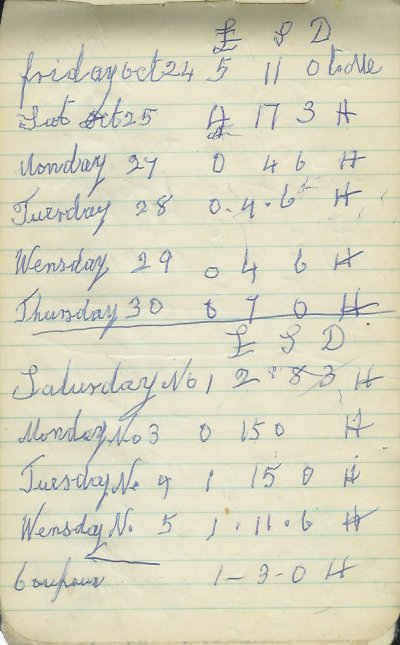 £ S D
friday oct 24 5 11 0 to Me
Sat Oct 25 4 17 3 H
Monday 27 0 4 6 H
Tuesday 28 0.4.6 H
Wensday 29 0 4 6 H
Thursday 30 0 7 0 H
£ S D
Saturday No 1 2 8 3 H
Monday No 3 0 15 0 H
Tuesday No. 4 1 15 0 H
Wensday No. 5 1.11.6 H
1-3-0 H